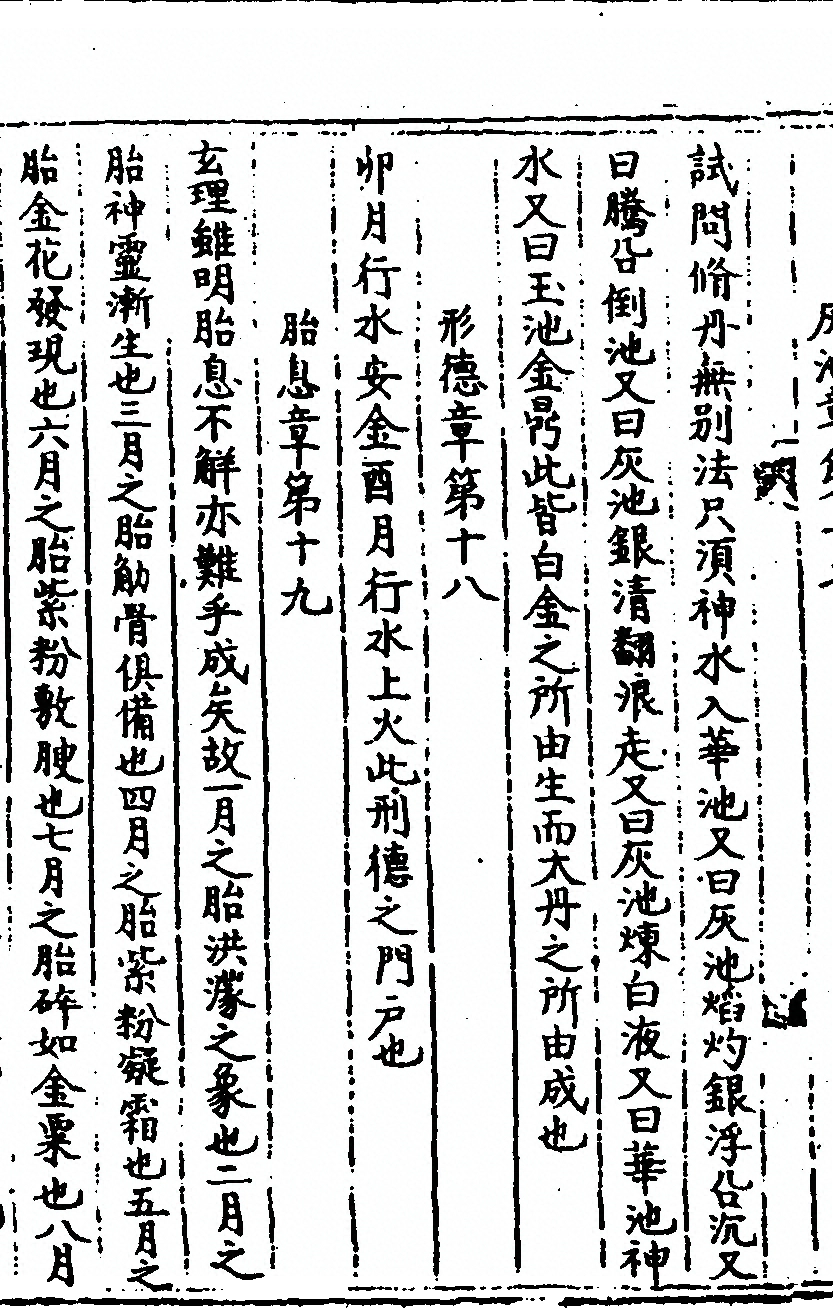 池章第十七
試問脩丹無别法只湏神水入華池又曰灰池焰灼銀浮㕣沉又
曰騰㕣倒池又曰灰池銀清翻浪走又曰灰池煉白液又曰華池神
水又曰玉池金鼎此皆白金之所由生而大丹之所由成也
形德章第十八
卯月行水安金酉月行水上火此刑德之門户也
胎息章第十九
玄理雖明胎息不觧亦難乎成矣故一月之胎洪濛之象也二月之
胎神靈漸生也三月之胎觔骨俱備也四月之胎紫粉凝霜也五月之
胎金花發現也六月之胎紫粉敷腴也七月之胎碎如金粟也八月